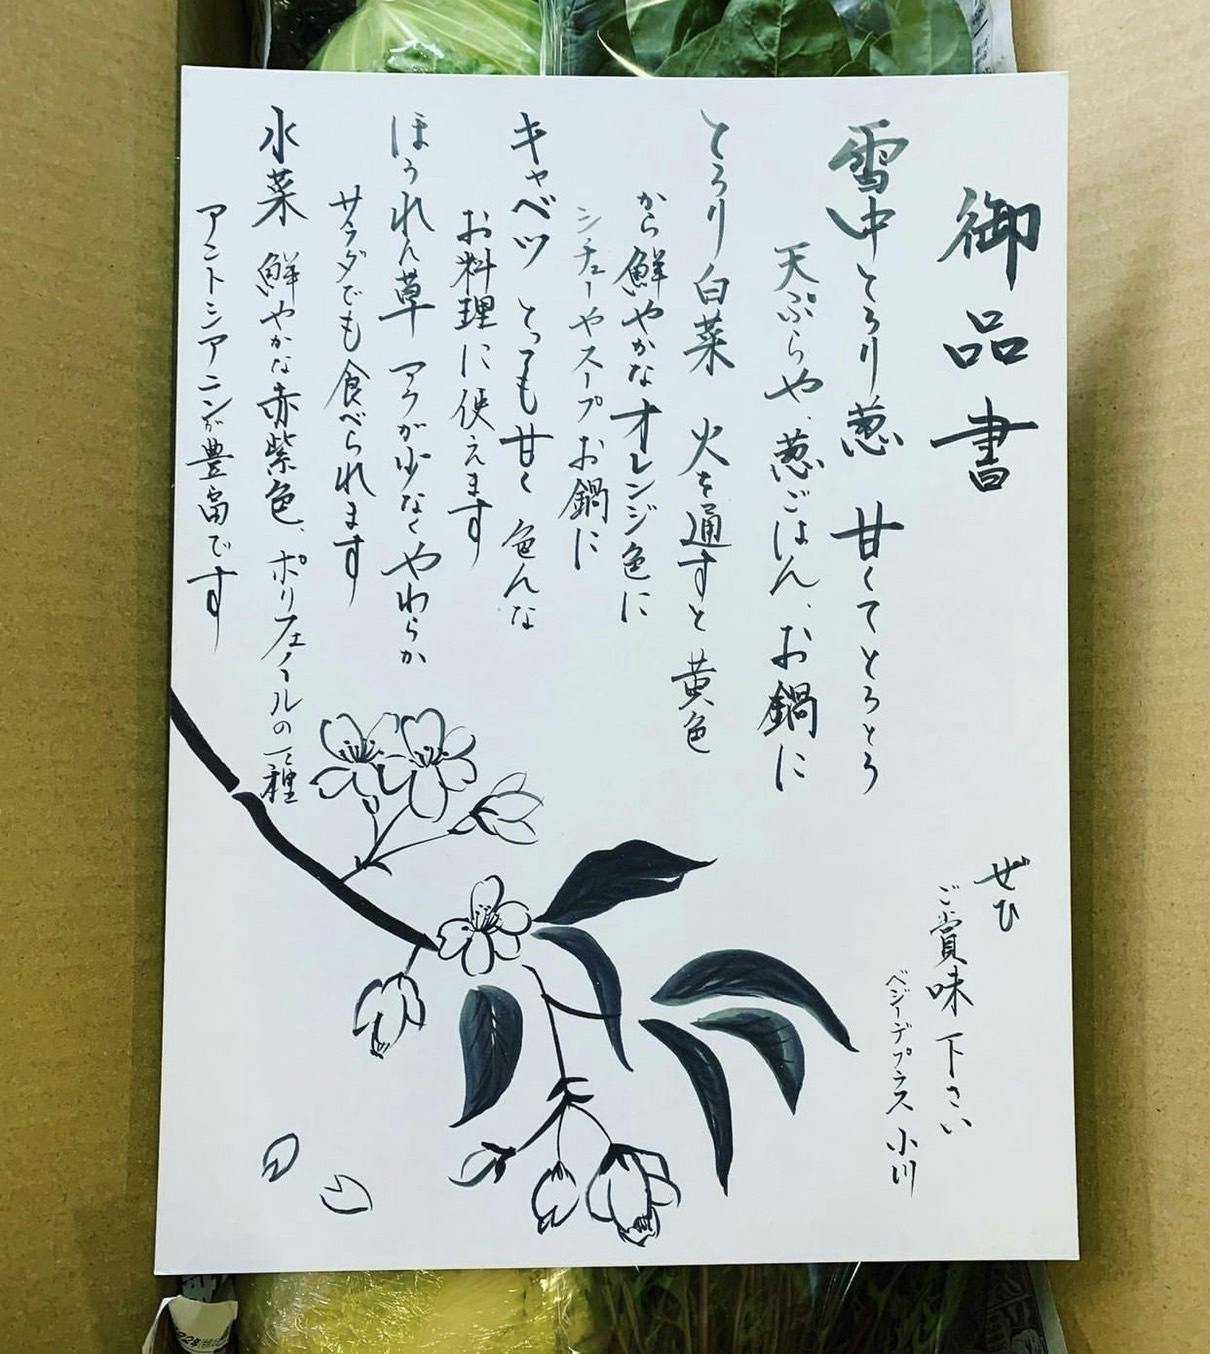 御品書
雪中とろり葱 甘くてとろとろ
天ぷらや、葱ごはん、お鍋に
とろり白菜 火を通すと黄色
から鮮やかなオレンジ色に
シチューやスープお鍋に
キャベツ とっても甘く 色んな
お料理に使えます
ほうれん草 アクが少なくやわらか
サラダでも食べられます
水菜 鮮やかな赤紫色、ポリフェノールの一種
アントシアニンが豊富です
ぜひ
ご賞味下さい
ベジーデプラス 小川